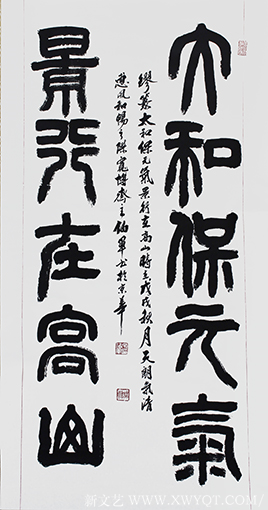 大和保元氣
繆篆太和保元氣景行在高山時在戊戌秋月天朗氣清
惠風和暢之際齋主書於京華
景行在高山
新文艺 - WWW.XWYQT.COM